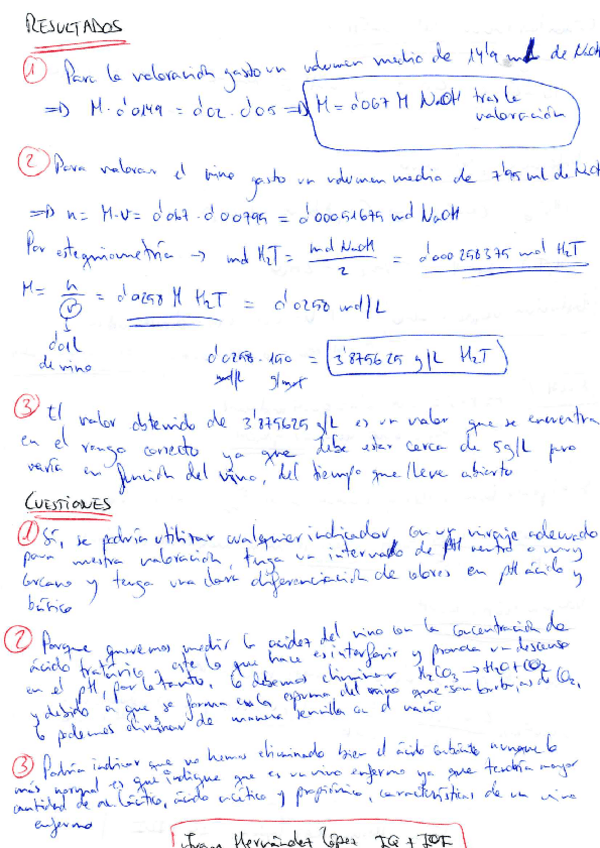 RESULTADOS
① Para la valoración gasto un volumen medio de 14'9 mL de NaOH
⇒ M · 0'0149 = 0'02 · 0'05 ⇒ M = 0'067 M NaOH tras la valoración
② Para valorar el vino gasto un volumen medio de 7'95 ml de NaOH
⇒ n = M·V = 0'067 · 0'00795 = 0'00051675 mol NaOH
Por estequiometría → mol H₂T = mol NaOH / 2 = 0'000258375 mol H₂T
M = n / V = 0'0258 M H₂T = 0'0258 mol/L
0'01L de vino
0'0258 mol/L · 150 g/mol = 3'875625 g/L H₂T
③ El valor obtenido de 3'875625 g/L es un valor que se encuentra
en el rango correcto ya que debe estar cerca de 5g/L pero
varía en función del vino, del tiempo que lleve abierto
CUESTIONES
① Sí, se podría utilizar cualquier indicador, con un viraje adecuado
para nuestra valoración, tenga un intervalo de pH neutro o muy
cercano y tenga una clara diferenciación de colores en pH ácido y
básico
② Porque queremos medir la acidez del vino con la concentración de
ácido tartárico y este lo que hace es interferir y provoca un descenso
en el pH, por lo tanto, lo debemos eliminar H₂CO₃ → H₂O + CO₂
y debido a que se forma en la espuma del vino que son burbujas de CO₂,
lo podemos eliminar de manera sencilla en el vacío
③ Podría indicar que no hemos eliminado bien el ácido aunque lo
más normal es que indique que es un vino enfermo ya que tendría mayor
cantidad de ac. láctico, ácido acético y propiónico, características de un vino
enfermo
Juan Hernández López IQ + IOI